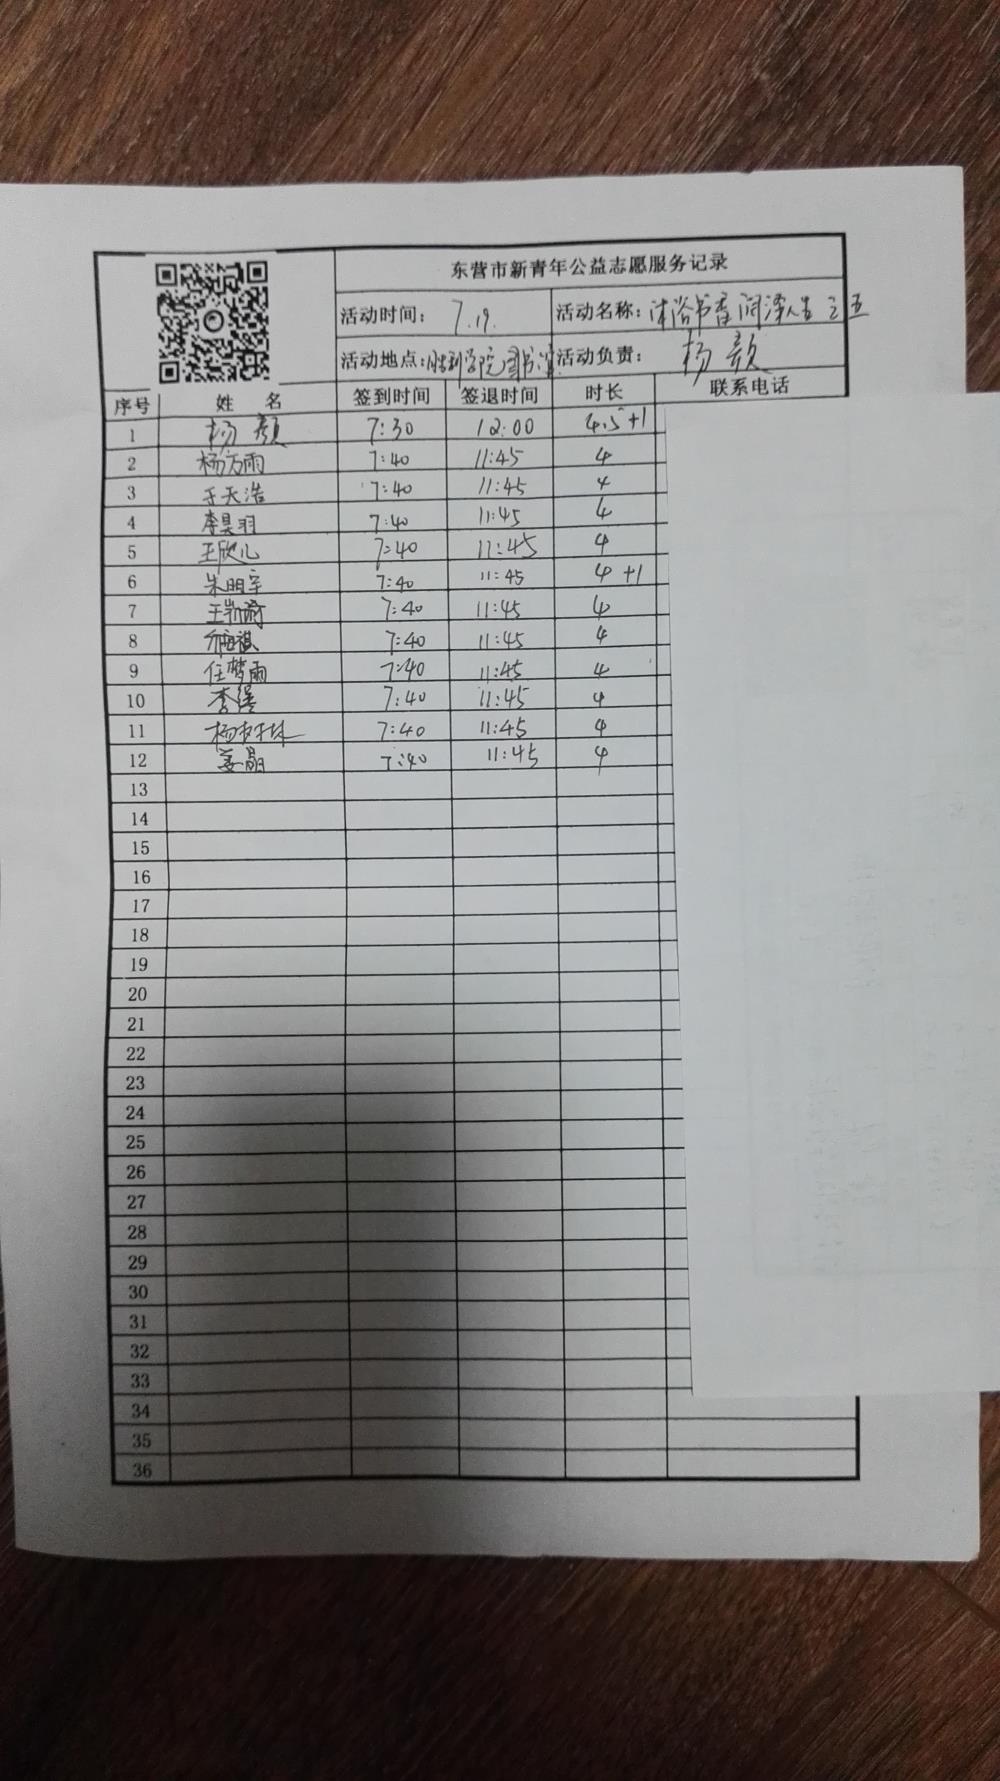 东营市新青年公益志愿服务记录
活动时间: 7.19. 活动名称: 沐浴书香 润泽人生之五
活动地点: 胜利学院图书馆 活动负责: 杨颜
序号 姓 名 签到时间 签退时间 时长 联系电话
1 杨颜 7:30 12:00 4.5+1
2 杨方雨 7:40 11:45 4
3 于天浩 7:40 11:45 4
4 李昊羽 7:40 11:45 4
5 王欣心 7:40 11:45 4
6 朱明宇 7:40 11:45 4 +1
7 7:40 11:45 4
8 7:40 11:45 4
9 任梦雨 7:40 11:45 4
10 7:40 11:45 4
11 杨树林 7:40 11:45 4
12 姜晶 7:40 11:45 4
13
14
15
16
17
18
19
20
21
22
23
24
25
26
27
28
29
30
31
32
33
34
35
36